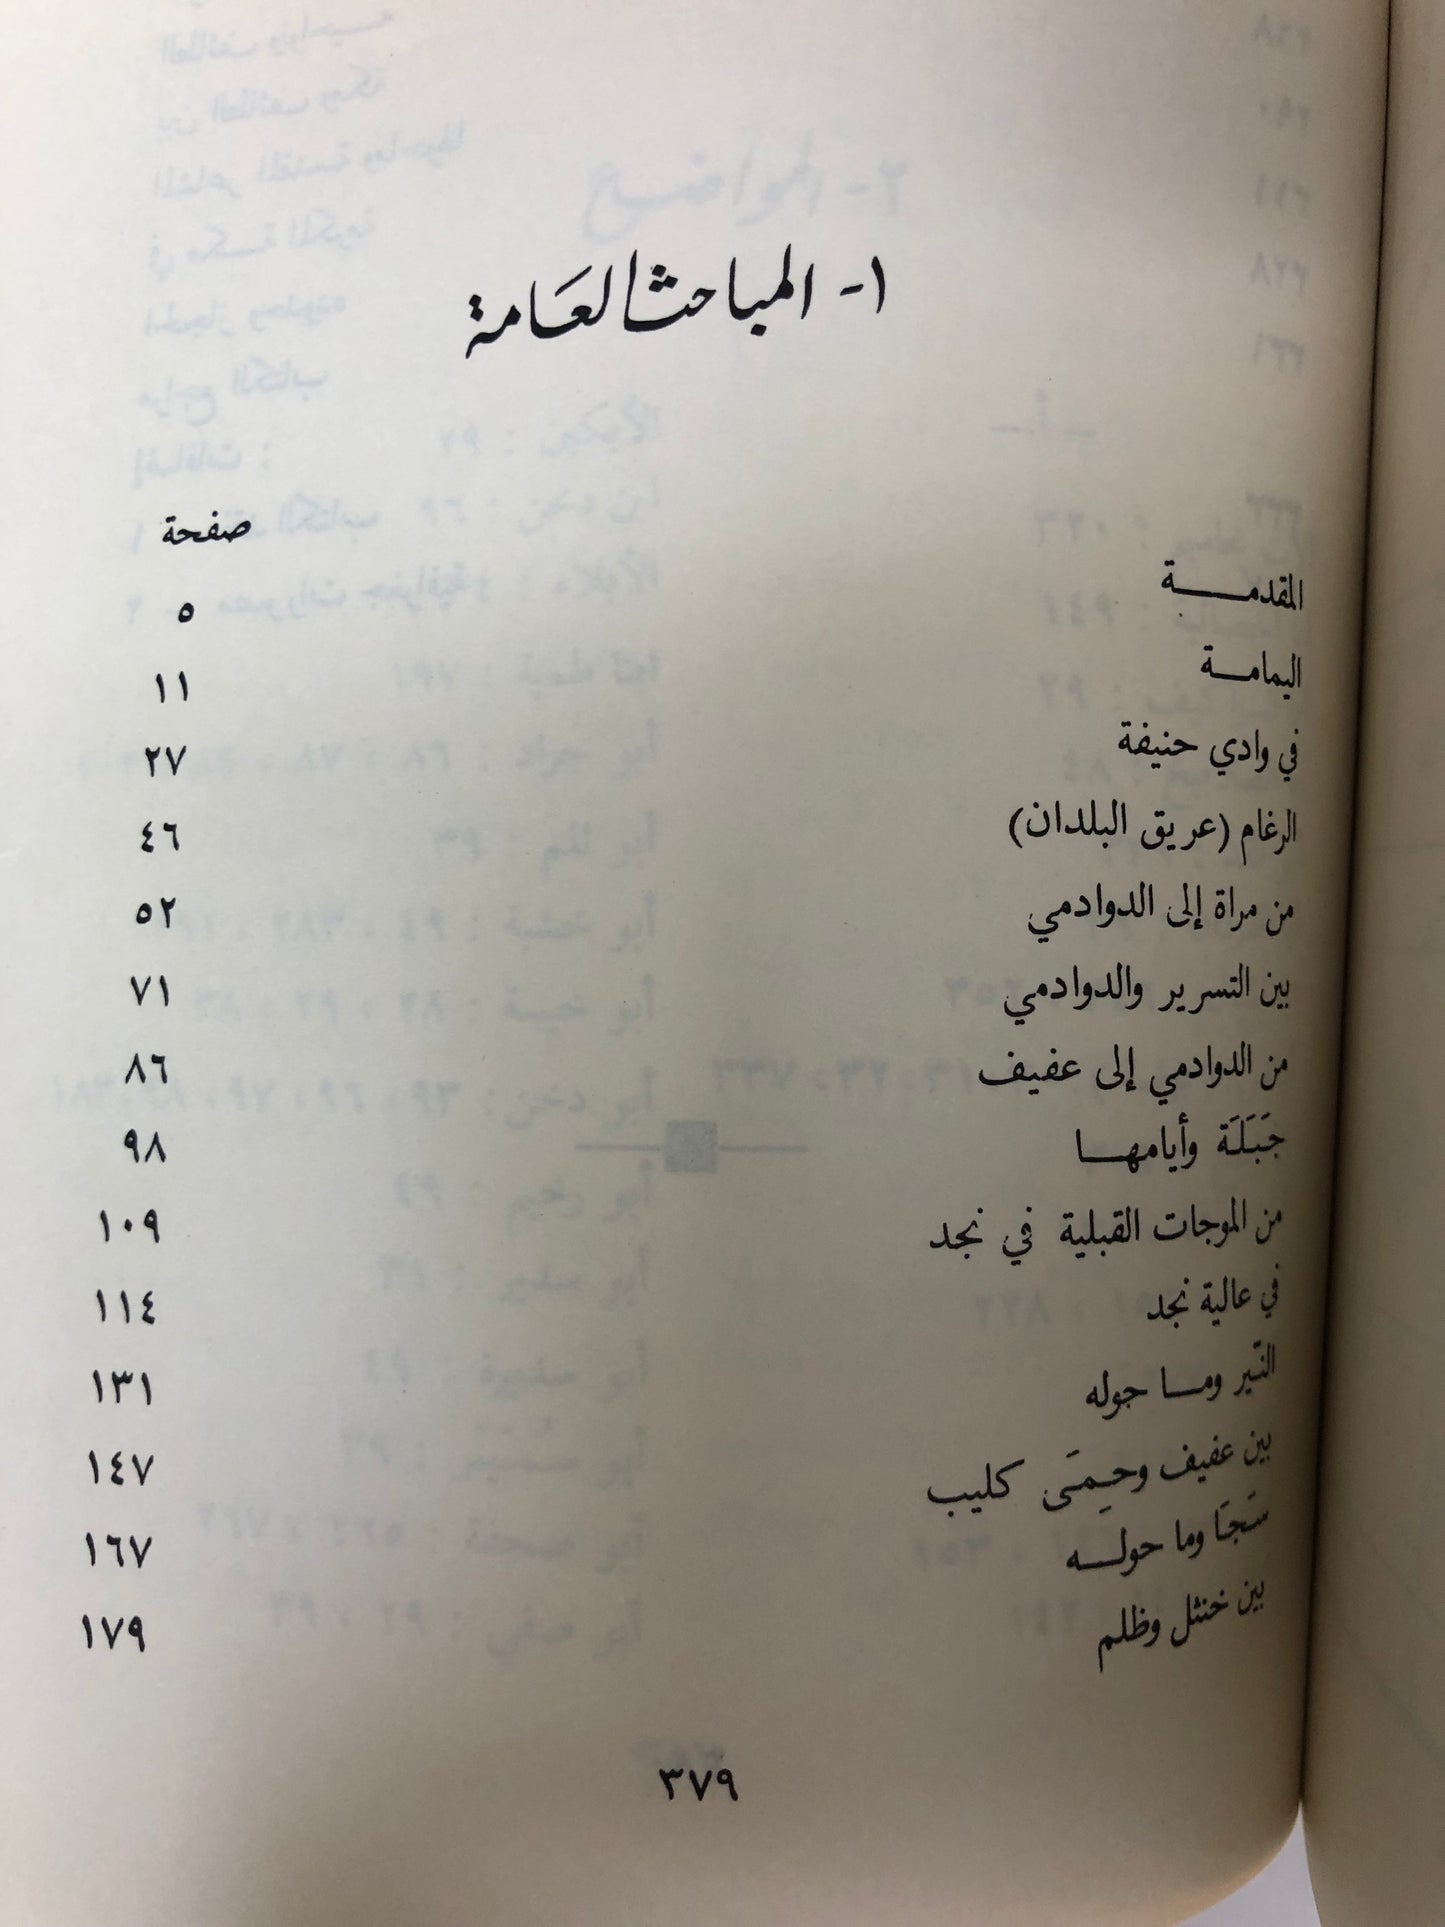 ١- المباحث العامة
صفحة
المقدمــــة ٥
اليمامــــة ١١
في وادي حنيفة ٢٧
الرغام (عريق البلدان) ٤٦
من مراة إلى الدوادمي ٥٢
بين التسرير والدوادمي ٧١
من الدوادمي إلى عفيف ٨٦
جَبَلَة وأيامهــا ٩٨
من الموجات القبلية في نجد ١٠٩
في عالية نجد ١١٤
النّير ومــا حوله ١٣١
بين عفيف وحِمَى كليب ١٤٧
سَجَا وما حولــه ١٦٧
بين خنثل وظلم ١٧٩
٣٧٩